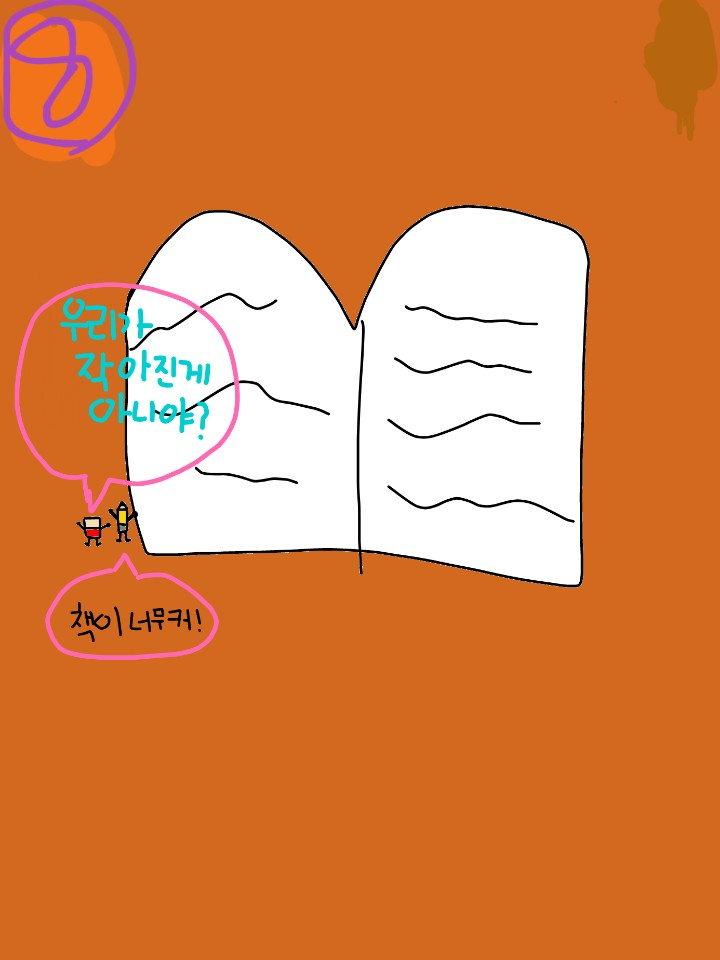 8
우리가
작아진게
아니야?
책이 너무커!